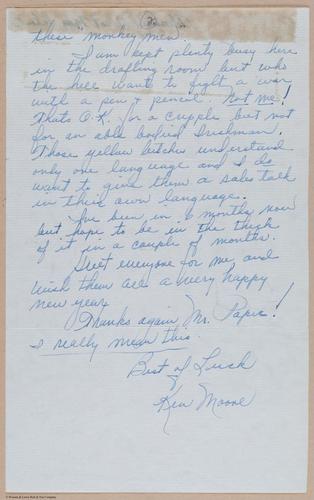 (2)
these "monkey men."
I am kept plenty busy here
in the drafting room but who
the hell wants to fight a war
with a pen & pencil. Not me!
Thats O.K. for a cripple but not
for an able bodied Irishman.
Those yellow bitches understand
only one language and I do
want to give them a sales talk
in their own language.
I've been in 6 months now
but hope to be in the thick
of it in a couple of months.
Greet everyone for me and
wish them all a very happy
new year.
Thanks again Mr. Papic!
I really mean this.
Best of Luck
Ken Moore